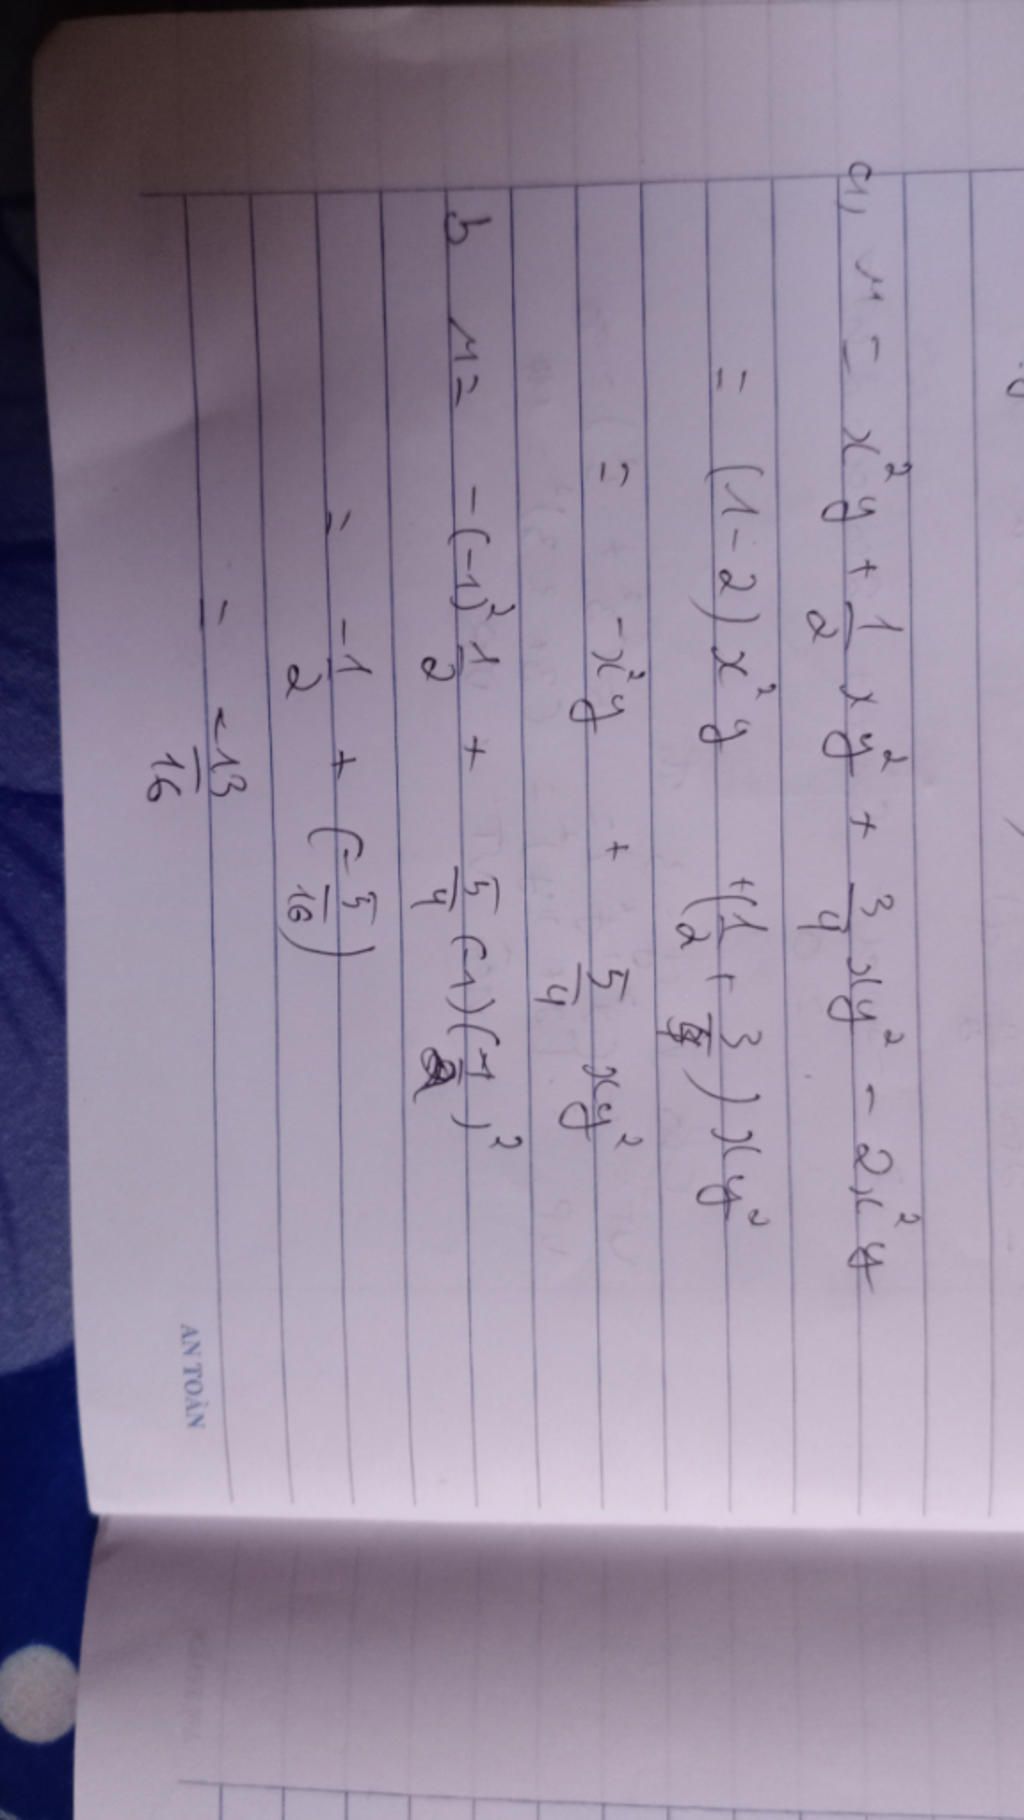 a, M = x²y + 1/2 xy² + 3/4 xy² - 2x²y
= (1-2) x²y + (1/2 + 3/4) xy²
= -x²y + 5/4 xy²
b M = -(-1)² 1/2 + 5/4 (-1) (1/2)²
= -1/2 + (-5/16)
= -13/16
AN TOÀN